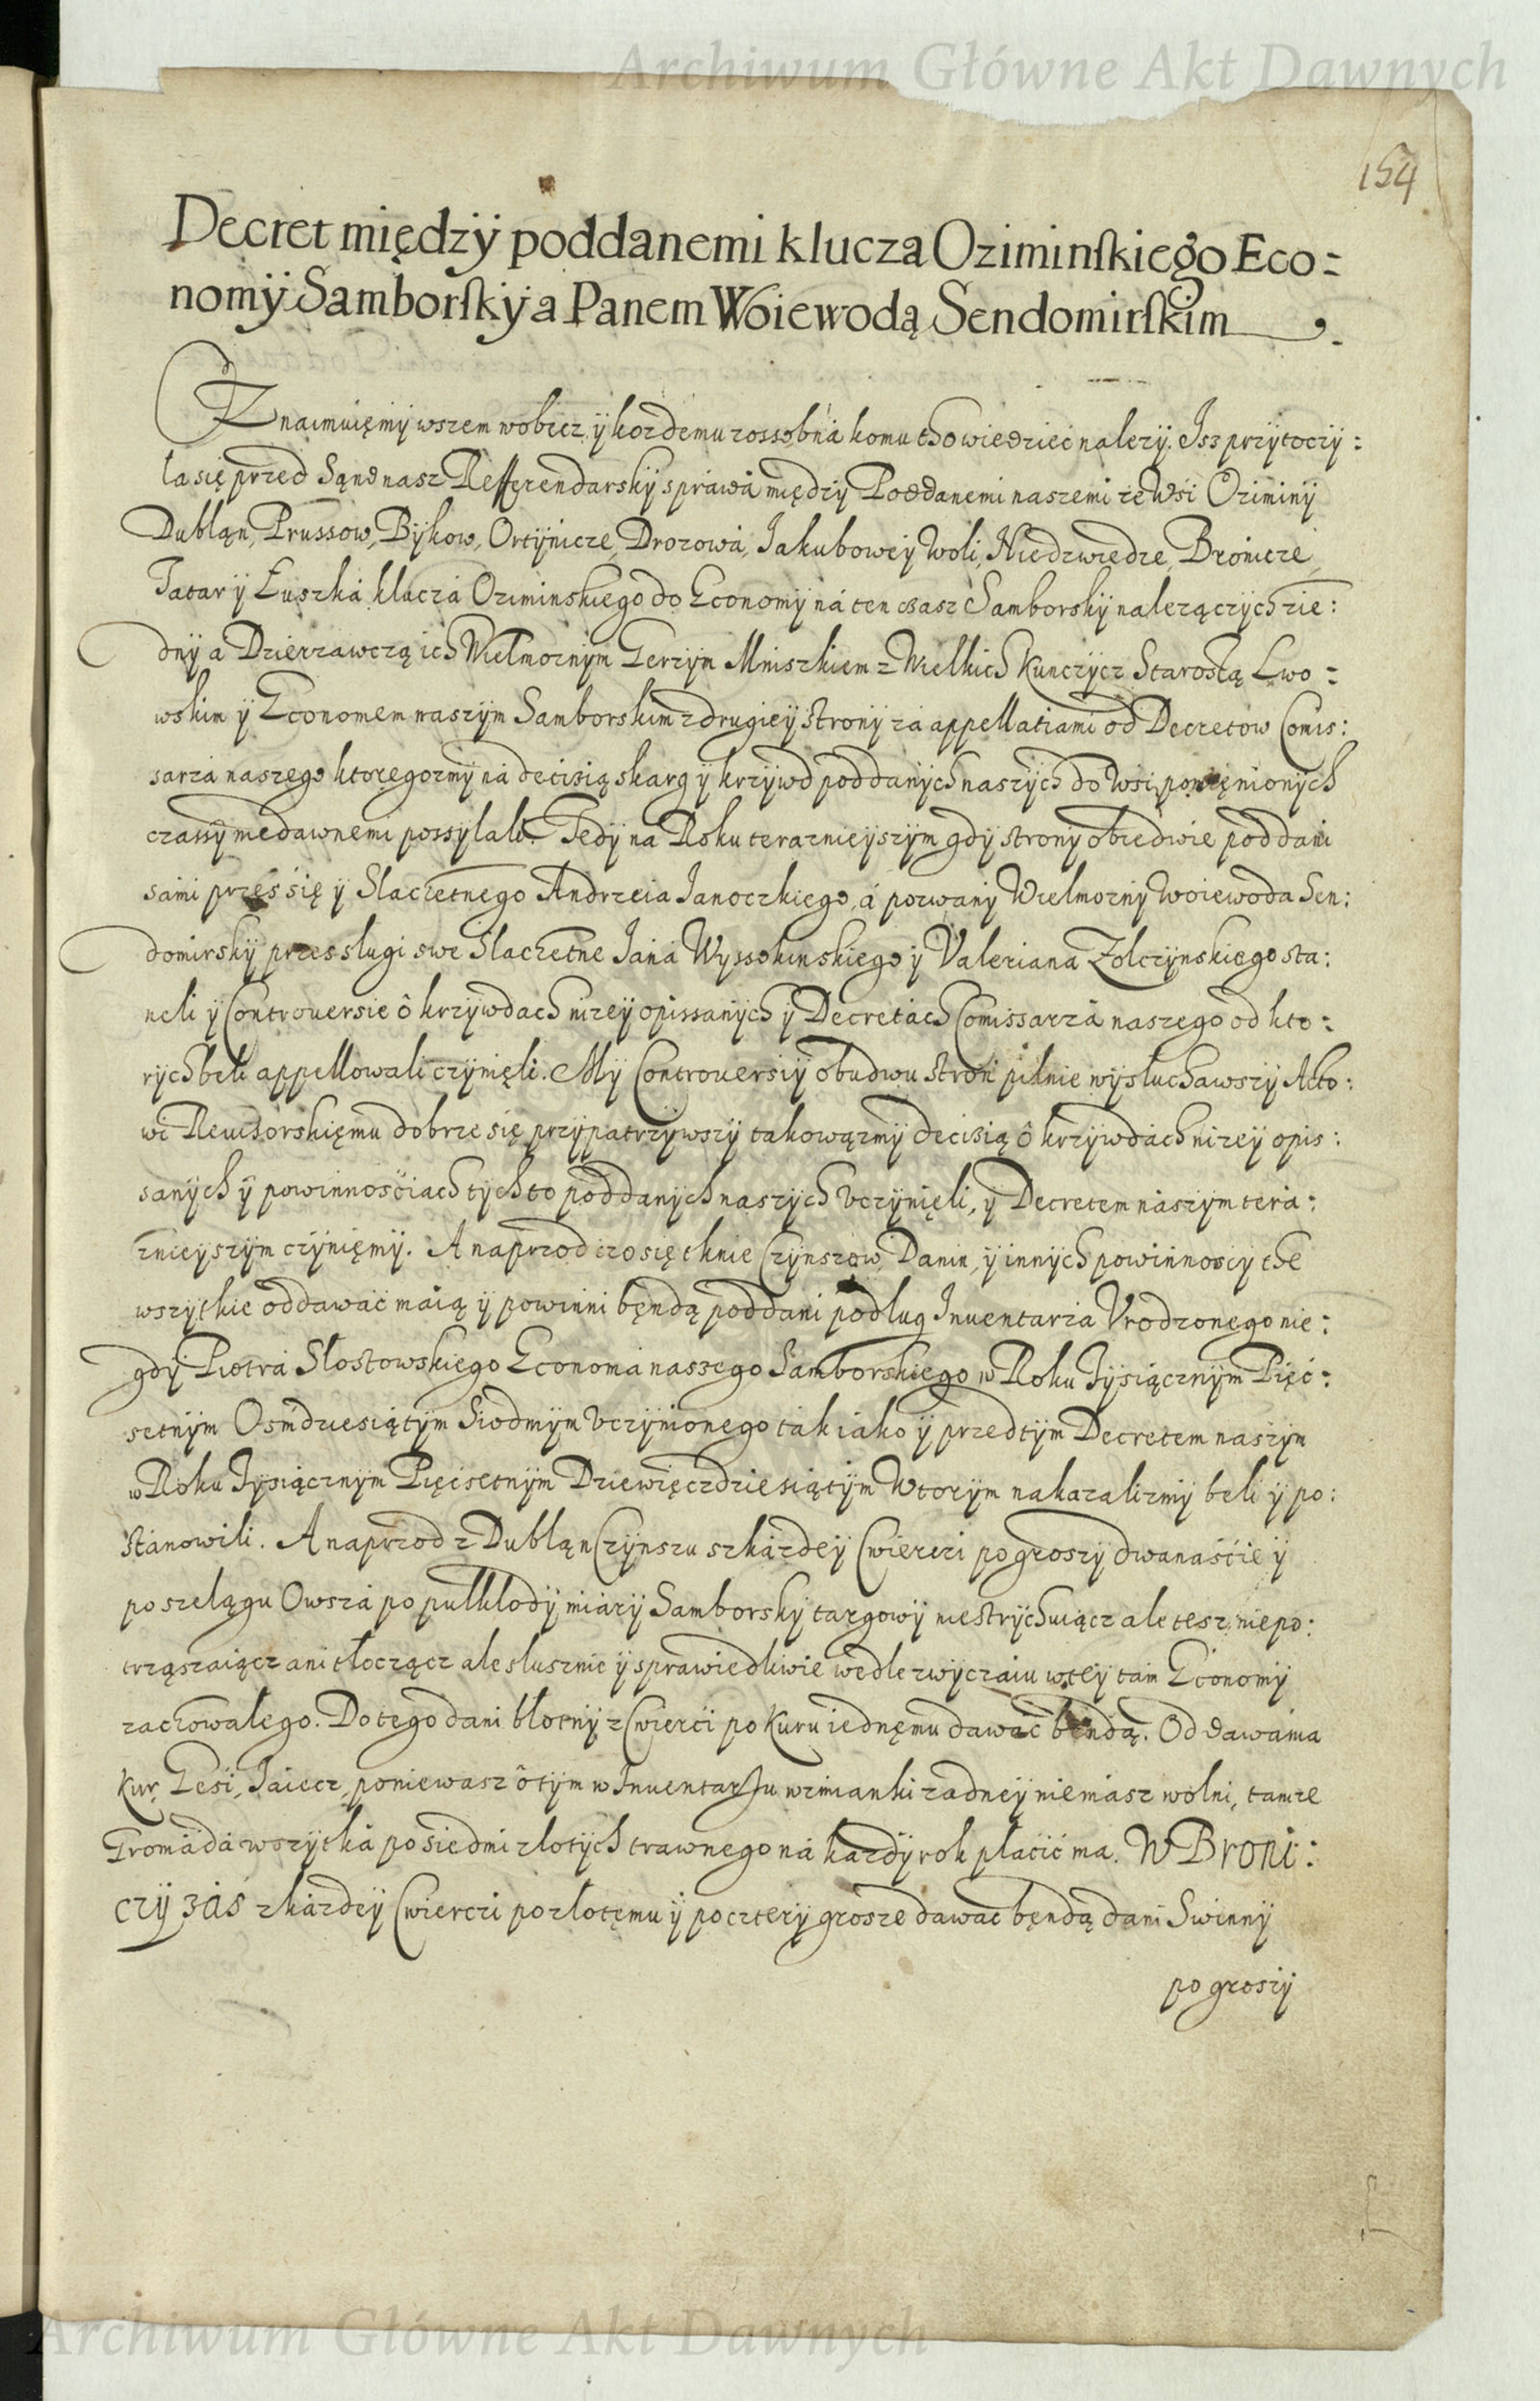 Archiwum Główne Akt Dawnych
154
Decret międzÿ poddanemi klucza Oziminskiego Eco=
nomÿ Samborskÿ a Panem Woiewodą Sendomirskim
Znaimuięmÿ wszem wobecz, ÿ kozdemu zossobna komu tho wiedzieć nalezÿ. Isz przÿtoczÿ:
ła się przed Sąnd nasz Refferendarskÿ sprawa międzÿ Poddanemi naszemi ze Wsi Oziminÿ
Dubląn, Prussow, Bÿkow, Ortÿnicze, Drozowa, Jakuboweÿ Woli, Niedzwiedze, Bronicze,
Tatar ÿ Łuszka klucza Oziminskiego do Economÿ na ten czasz Samborskÿ nalezączÿch zie:
dnÿ a Dzierzawczą ich Wielmoznÿm Gerzÿm Mniszkiem z Wielkich Kunczÿcz Starostą Lwo=
wskim ÿ Economem naszÿm Samborskim z drugieÿ stronÿ za appellatiami od Decretow Comis:
sarza naszego ktoregozmÿ na decisią skarg ÿ krzÿwd poddanÿch naszÿch do Wsi pomięnionÿch
czassÿ niedawnemi possÿlali. Tedÿ na Roku teraznieÿszÿm gdÿ stronÿ obiedwie poddani
sami przes się ÿ Slachetnego Andrzeia Janoczkiego, a pozwanÿ Wielmoznÿ Woiewoda Sen:
domirskÿ przes slugi swe Slachetne Jana Wyssokinskiego ÿ Valeriana Zolczÿnskiego sta:
neli ÿ Controuersie o krzÿwdach nizeÿ opissanÿch ÿ Decretach Comissarza naszego od kto=
rÿch beli appellowali czÿnięli. Mÿ Controuersiÿ obudwu stron pilnie wÿsłuchawszÿ Akto:
wi Reuisorskięmu dobrze się przÿpatrzÿwszÿ takowązmÿ decisią o krzÿwdach nizeÿ opis:
sanÿch ÿ powinnościach tÿch to poddanÿch naszÿch vczÿnięli, ÿ Decretem naszÿm tera:
znieÿszÿm czÿnięmÿ. A naprzod czo się tknie Czÿnszow, Danin, ÿ innÿch powinnoscÿ the
wszÿtkie oddawać maią ÿ powinni będą poddani podług Inuentarza Vrodzonego nie:
gdÿ Piotra Słostowskiego Economa naszego Samborskiego w Roku Tÿsiącznÿm Pięć:
setnÿm Osmdziesiątÿm Siodmÿm vczÿnionego tak iako ÿ przedtÿm Decretem naszÿm
w Roku Tÿsiącznÿm Pięcisetnÿm Dziewięczdziesiątÿm Wtorÿm nakazalizmÿ beli ÿ po:
stanowili. A naprzod z Dubląn Czÿnszu szkazdeÿ Cwierczi po groszÿ dwanaście ÿ
po szelągu Owsza po pułkłodÿ miarÿ Samborskÿ targowÿ niestrÿchuiącz ale tesz niepo:
trząszaiącz ani tłocząncz ale slusznie ÿ sprawiedliwie wedle zwÿczaiu wteÿ tam Economÿ
zachowałego. Do tego dani błotnÿ z Cwierci po Kuru iednęmu dawać będą. Od dawania
Kur, Gesi, Jaiecz, poniewasz o tÿm w Inuentarzu wzmianki zadneÿ niemasz wolni, tamze
Gromada wszÿtka po siedmi złotÿch trawnego na kazdÿ rok płacić ma. W Broni:
czÿ zas z kazdeÿ Cwierczi po złotęmu ÿ po czterÿ grosze dawać będą dani Swinnÿ
po groszÿ
Archiwum Główne Akt Dawnych